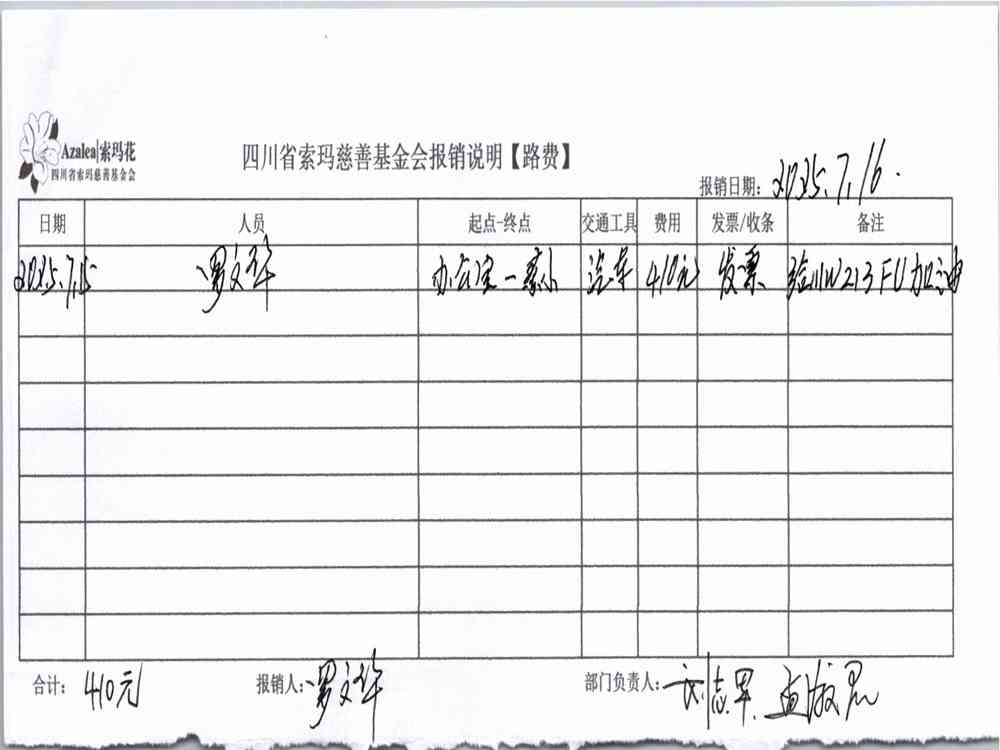 Azalea|索玛花
四川省索玛慈善基金会
四川省索玛慈善基金会报销说明【路费】
报销日期: 2025.7.16.
日期 人员 起点-终点 交通工具 费用 发票/收条 备注
2025.7.15 罗文华 办公室一 汽车 410元 发票 川W213FU加油
合计: 410元 报销人: 罗文华 部门负责人: